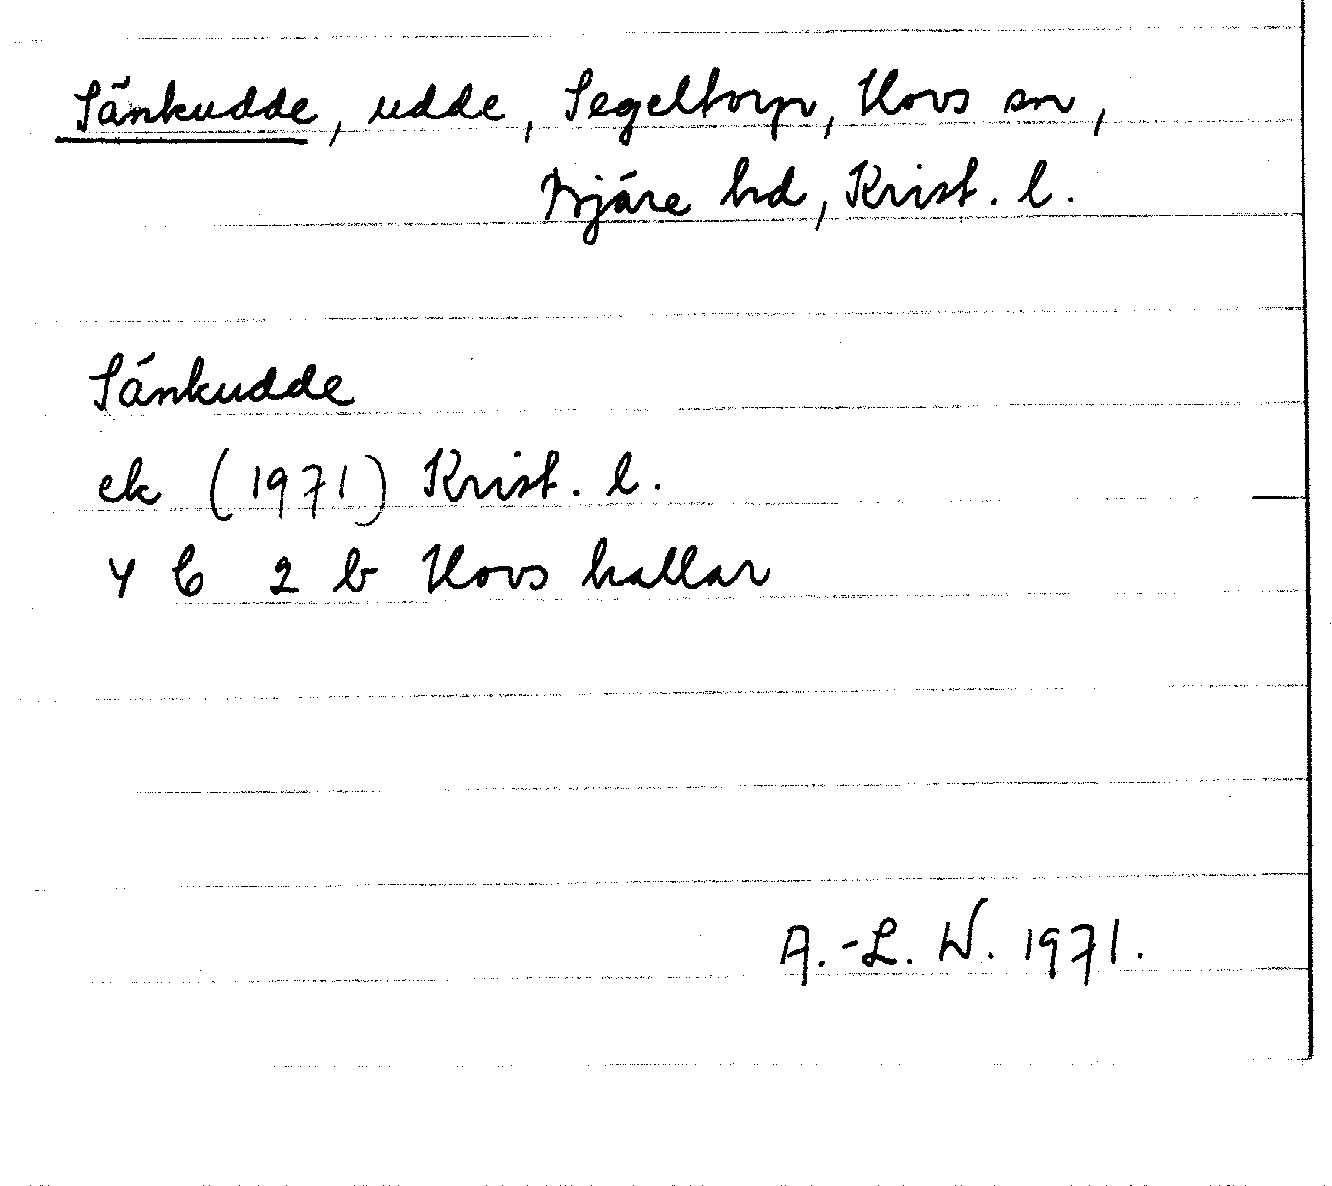 Sänkudde, udde, Segeltorp, Hovs sn,
Bjäre hd, Krist. l.
Sänkudde
ek (1971) Krist. l.
4 C 2 b Hovs hallar
A.-L. W. 1971.